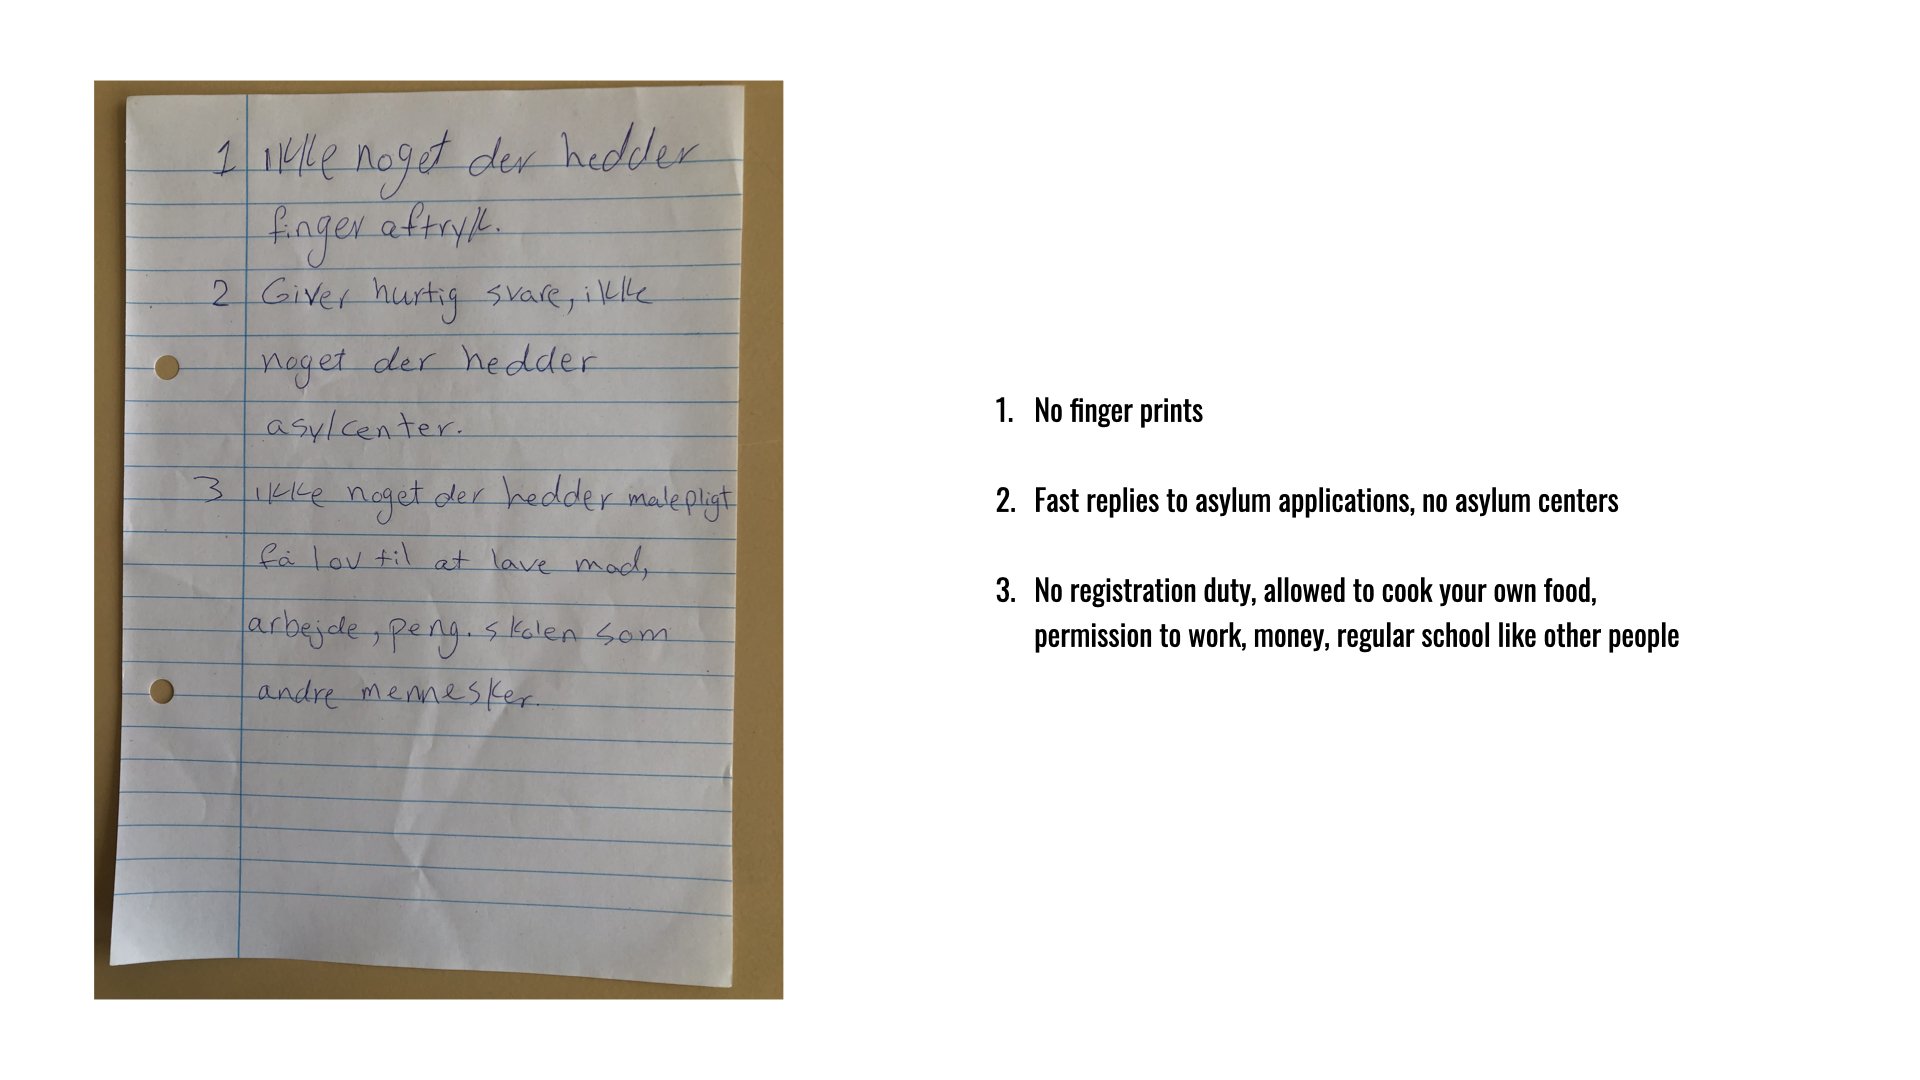 1 ikke noget der hedder
finger aftryk.
2 Giver hurtig svare, ikke
noget der hedder
asylcenter.
3 ikke noget der hedder malepligt
få lov til at lave mad,
arbejde, peng. skolen som
andre mennesker.
1. No finger prints
2. Fast replies to asylum applications, no asylum centers
3. No registration duty, allowed to cook your own food,
permission to work, money, regular school like other people